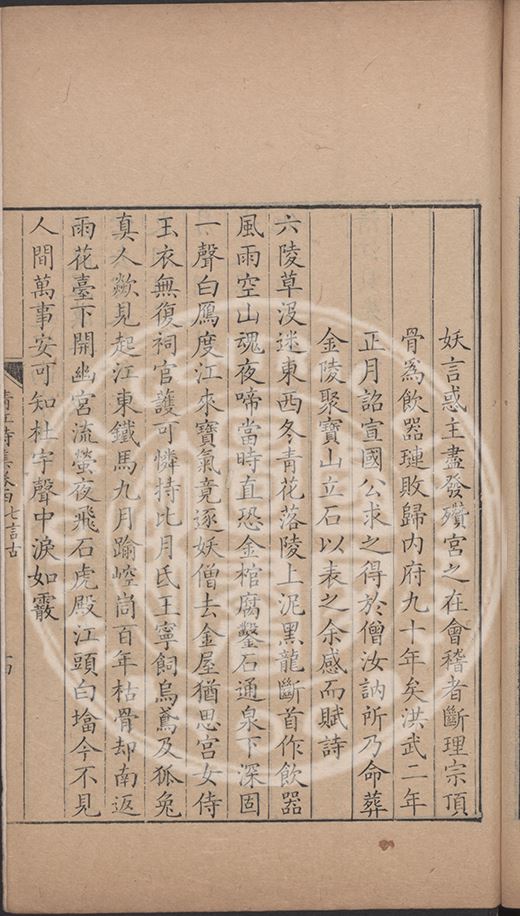 妖言惑主盡發殯宮之在會稽者斷理宗頂
骨爲飲器璉敗歸内府九十年矣洪武二年
正月詔宣國公求之得於僧汝訥所乃命葬
金陵聚寶山立石以表之余感而賦詩
六陵草没迷東西冬青花落陵上泥黑龍斷首作飲器
風雨空山魂夜啼當時直恐金棺腐鑿石通泉下深固
一聲白鴈度江來寶氣竟逐妖僧去金屋猶思宮女侍
玉衣無復祠官護可憐持比月氏王寧飼烏鳶及狐兔
真人歘見起江東鐵馬九月踰崆峒百年枯骨却南返
雨花臺下開幽宮流螢夜飛石虎殿江頭白塔今不見
人間萬事安可知杜宇聲中淚如霰
七言古